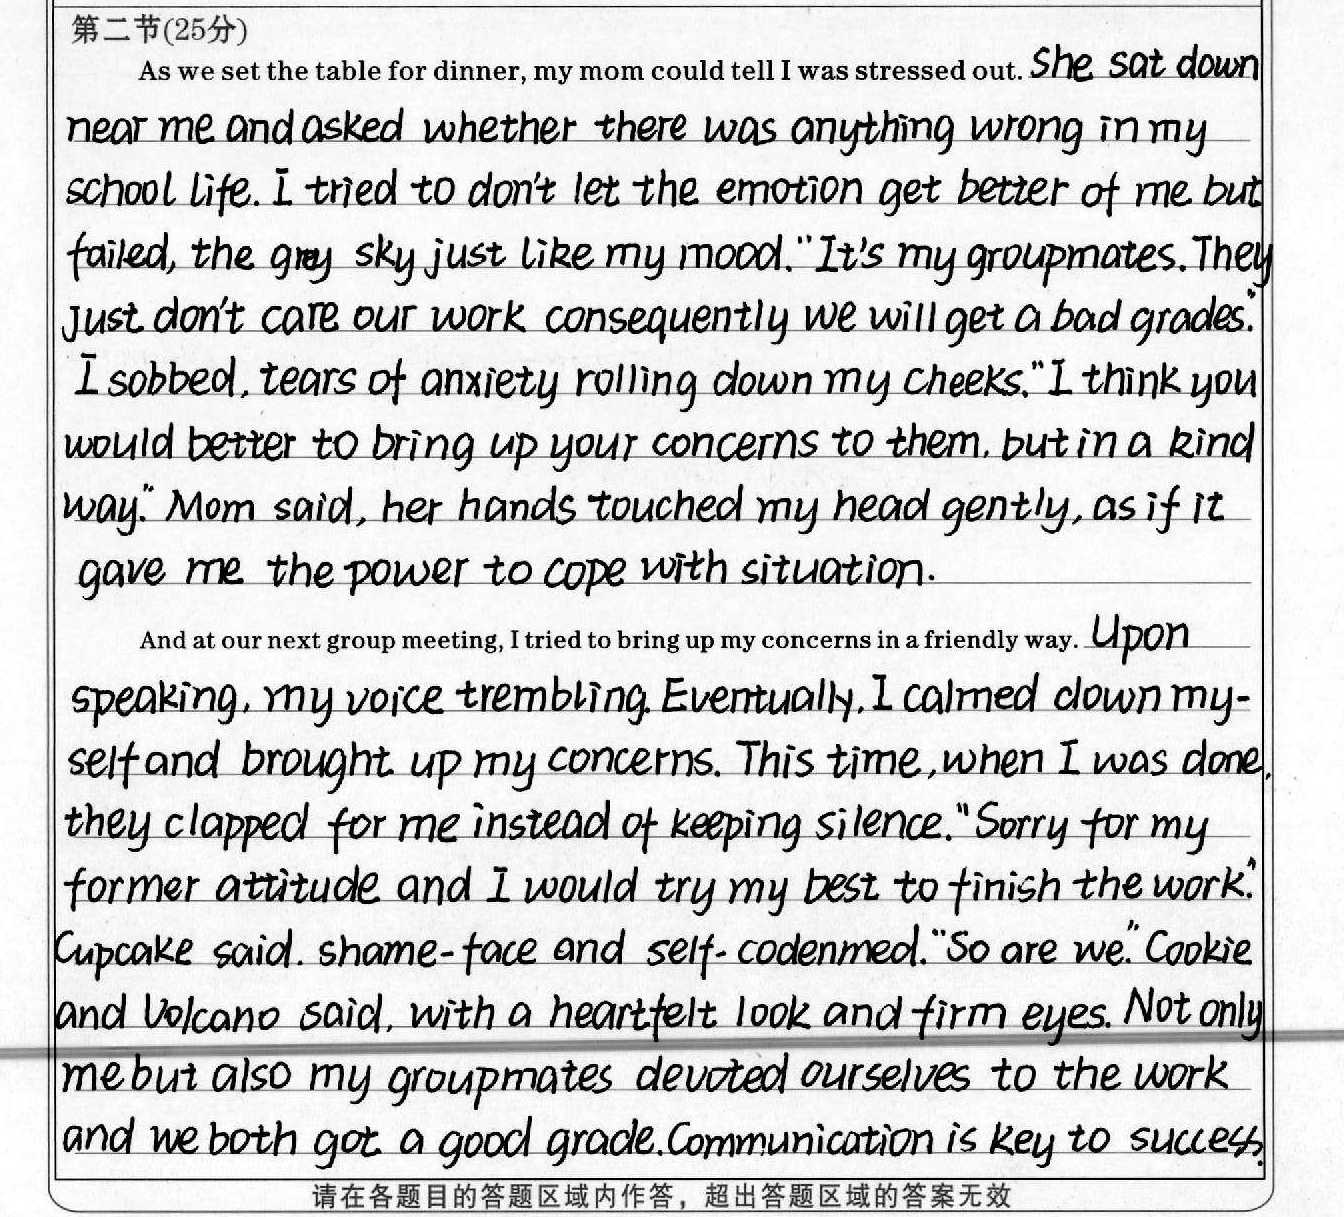 第二节(25分)
As we set the table for dinner, my mom could tell I was stressed out. She sat down
near me and asked whether there was anything wrong in my
school life. I tried to don't let the emotion get better of me but
failed, the grey sky just like my mood. "It's my groupmates. They
just don't care our work consequently we will get a bad grades."
I sobbed, tears of anxiety rolling down my cheeks. "I think you
would better to bring up your concerns to them, but in a kind
way." Mom said, her hands touched my head gently, as if it
gave me the power to cope with situation.
And at our next group meeting, I tried to bring up my concerns in a friendly way. Upon
speaking, my voice trembling. Eventually, I calmed down my-
self and brought up my concerns. This time, when I was done,
they clapped for me instead of keeping silence. "Sorry for my
former attitude and I would try my best to finish the work."
Cupcake said, shame-face and self-codenmed. "So are we." Cookie
and Volcano said, with a heartfelt look and firm eyes. Not only
me but also my groupmates devoted ourselves to the work
and we both got a good grade. Communication is key to success.
请在各题目的答题区域内作答，超出答题区域的答案无效